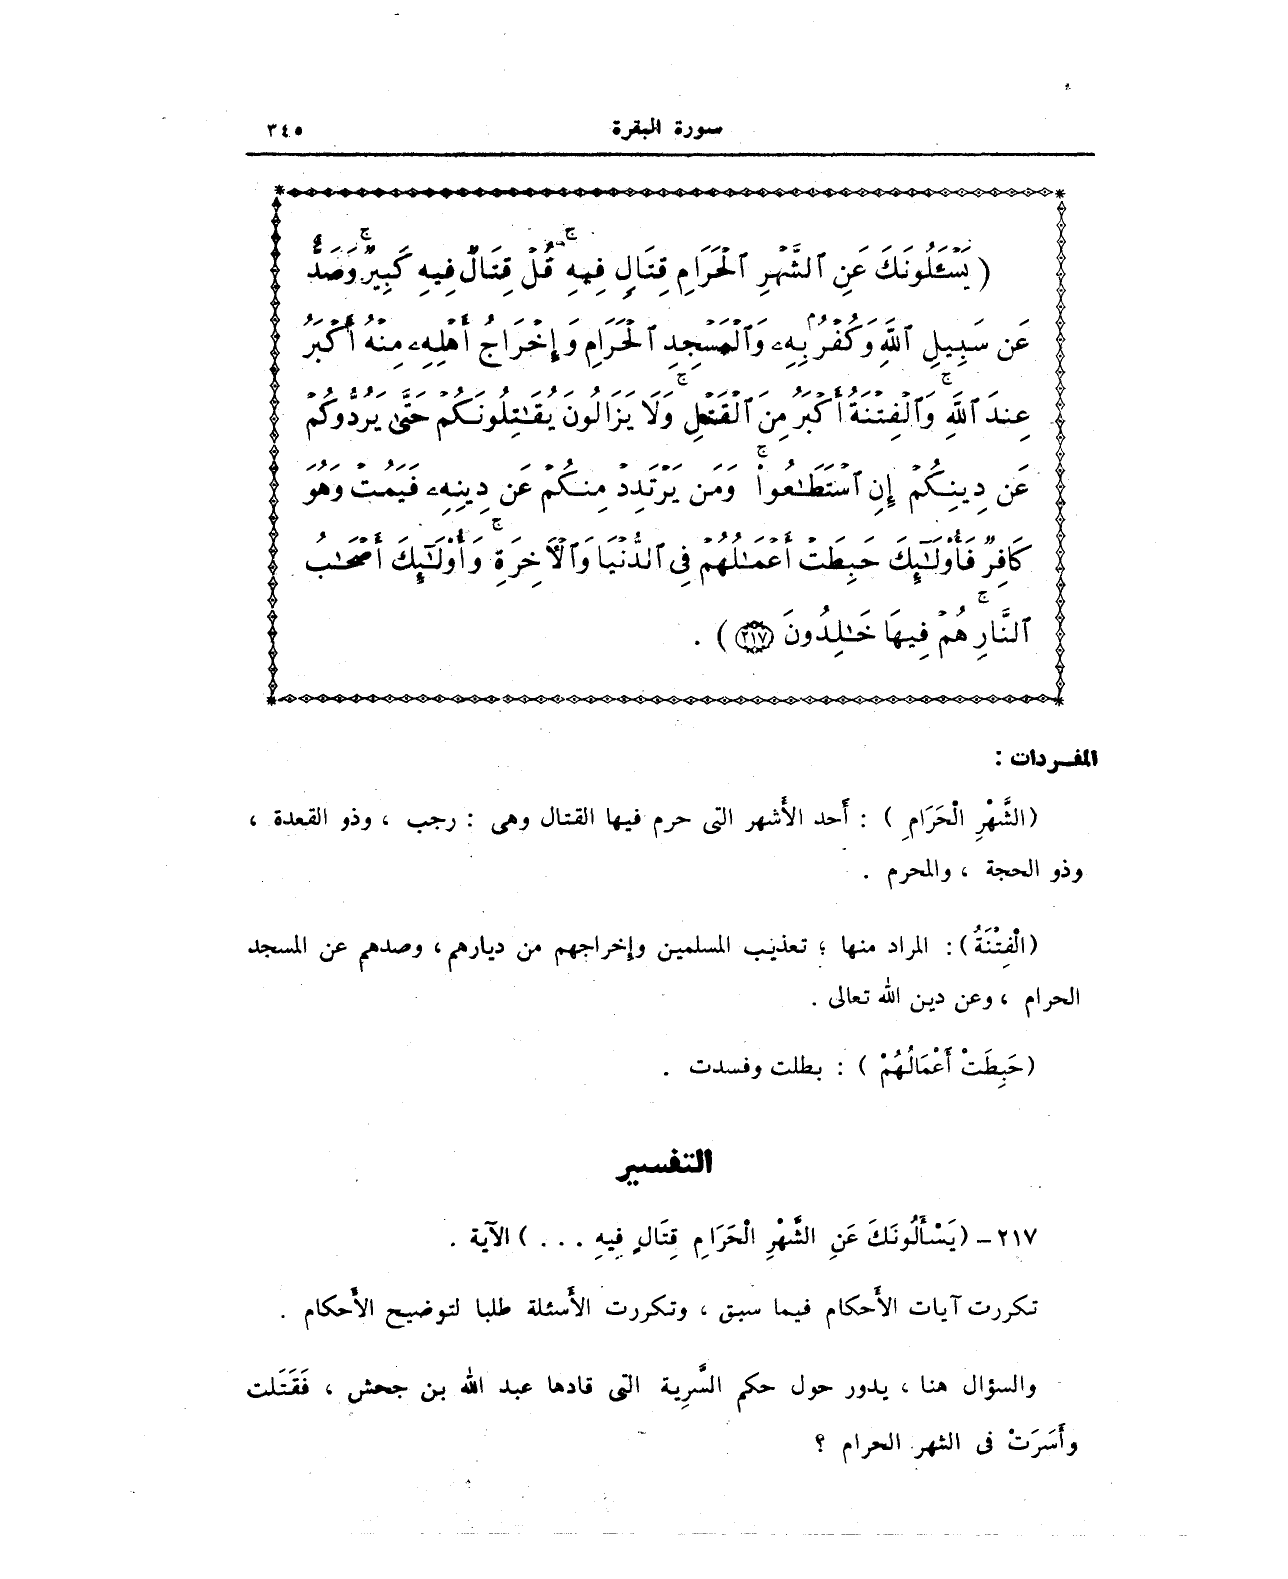 سورة البقرة ٣٤٥
( يَسْـَٔلُونَكَ عَنِ ٱلشَّهْرِ ٱلْحَرَامِ قِتَالٍ فِيهِ ۖ قُلْ قِتَالٌ فِيهِ كَبِيرٌ ۚ وَصَدٌّ
عَن سَبِيلِ ٱللَّهِ وَكُفْرٌۢ بِهِۦ وَٱلْمَسْجِدِ ٱلْحَرَامِ وَإِخْرَاجُ أَهْلِهِۦ مِنْهُ أَكْبَرُ
عِندَ ٱللَّهِ ۚ وَٱلْفِتْنَةُ أَكْبَرُ مِنَ ٱلْقَتْلِ ۗ وَلَا يَزَالُونَ يُقَـٰتِلُونَكُمْ حَتَّىٰ يَرُدُّوكُمْ
عَن دِينِكُمْ إِنِ ٱسْتَطَـٰعُوا۟ ۚ وَمَن يَرْتَدِدْ مِنكُمْ عَن دِينِهِۦ فَيَمُتْ وَهُوَ
كَافِرٌ فَأُو۟لَـٰٓئِكَ حَبِطَتْ أَعْمَـٰلُهُمْ فِى ٱلدُّنْيَا وَٱلْـَٔاخِرَةِ ۖ وَأُو۟لَـٰٓئِكَ أَصْحَـٰبُ
ٱلنَّارِ ۖ هُمْ فِيهَا خَـٰلِدُونَ ٢١٧ ) .
المفـردات :
(الشَّهْرِ الْحَرَامِ ) : أَحد الأَشهر التى حرم فيها القتال وهى : رجب ، وذو القعدة ،
وذو الحجة ، والمحرم .
(الْفِتْنَةُ): المراد منها ؛ تعذيب المسلمين وإخراجهم من ديارهم، وصدهم عن المسجد
الحرام ، وعن دين الله تعالى .
(حَبِطَتْ أَعْمَالُهُمْ ) : بطلت وفسدت .
التفسير
٢١٧ – (يَسْأَلُونَكَ عَنِ الشَّهْرِ الْحَرَامِ قِتَالٍ فِيهِ . . . ) الآية .
تكررت آيات الأَحكام فيما سبق ، وتكررت الأَسئلة طلبا لتوضيح الأَحكام .
والسؤال هنا ، يدور حول حكم السَّرِية التى قادها عبد الله بن جحش ، فَقَتَلت
وأَسَرَتْ فى الشهر الحرام ؟